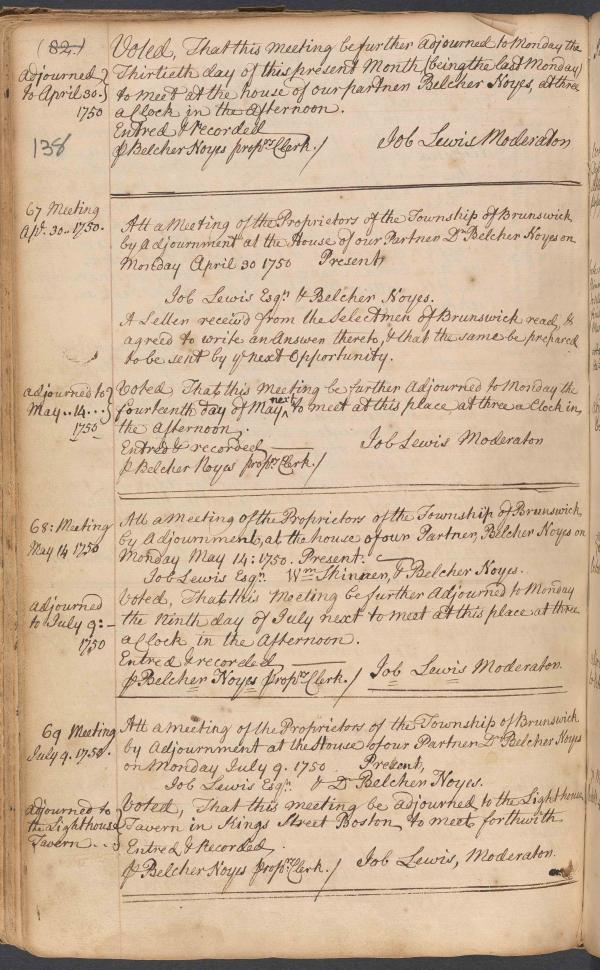 (82.)
Voted, That this meeting be further adjourned to Monday the
adjourned
Thirtieth day of this present Month (being the last Monday)
to April 30.
to meet at the house of our partner Belcher Noyes, at three
1750
a Clock in the afternoon.
Entred & recorded
138
⅌ Belcher Noyes propr.s Clerk./
Job Lewis Moderator
67 Meeting
Ap.l 30.. 1750.
Att a Meeting of the Proprietors of the Township of Brunswick
by adjournment at the House of our Partner Dr Belcher Noyes on
Monday April 30 1750 Present,
Job Lewis Esqr. & Belcher Noyes.
A Letter receiv'd from the Selectmen of Brunswick read, &
agreed to write an answer thereto, & that the same be prepared
to be sent by ye next Opportunity.
adjourned to
Voted That this Meeting be further adjourned to Monday the
May..14...
fourteenth day of May next to meet at this place at three a Clock in
1750
the afternoon.
Entred & recorded
Job Lewis Moderator
⅌ Belcher Noyes propr.s Clerk./
68: Meeting
Att a Meeting of the Proprietors of the Township of Brunswick
May 14 1750
by Adjournment, at the house of our Partner, Belcher Noyes on
Monday May 14: 1750. Present.
Job Lewis Esqr. Wm Skinner, & Belcher Noyes.
adjourned
Voted, That this Meeting be further Adjourned to Monday
to July 9: -
the ninth day of July next to meet at this place at three
1750
a Clock in the Afternoon.
Entred & recorded
⅌ Belcher Noyes propr.s Clerk./
Job Lewis Moderator.
69 Meeting
Att a meeting of the Proprietors of the Township of Brunswick
July 9. 1750.
by Adjournment at the House of our Partner Dr Belcher Noyes
on Monday July 9. 1750 Present,
Job Lewis Esqr. & Dr Belcher Noyes.
adjourned to
Voted, That this meeting be adjourned to the Lighthouse
the Lighthouse
Tavern in Kings Street Boston to meet forthwith
Tavern...
Entred & Recorded
⅌ Belcher Noyes Propr.s Clerk./
Job Lewis, Moderator.